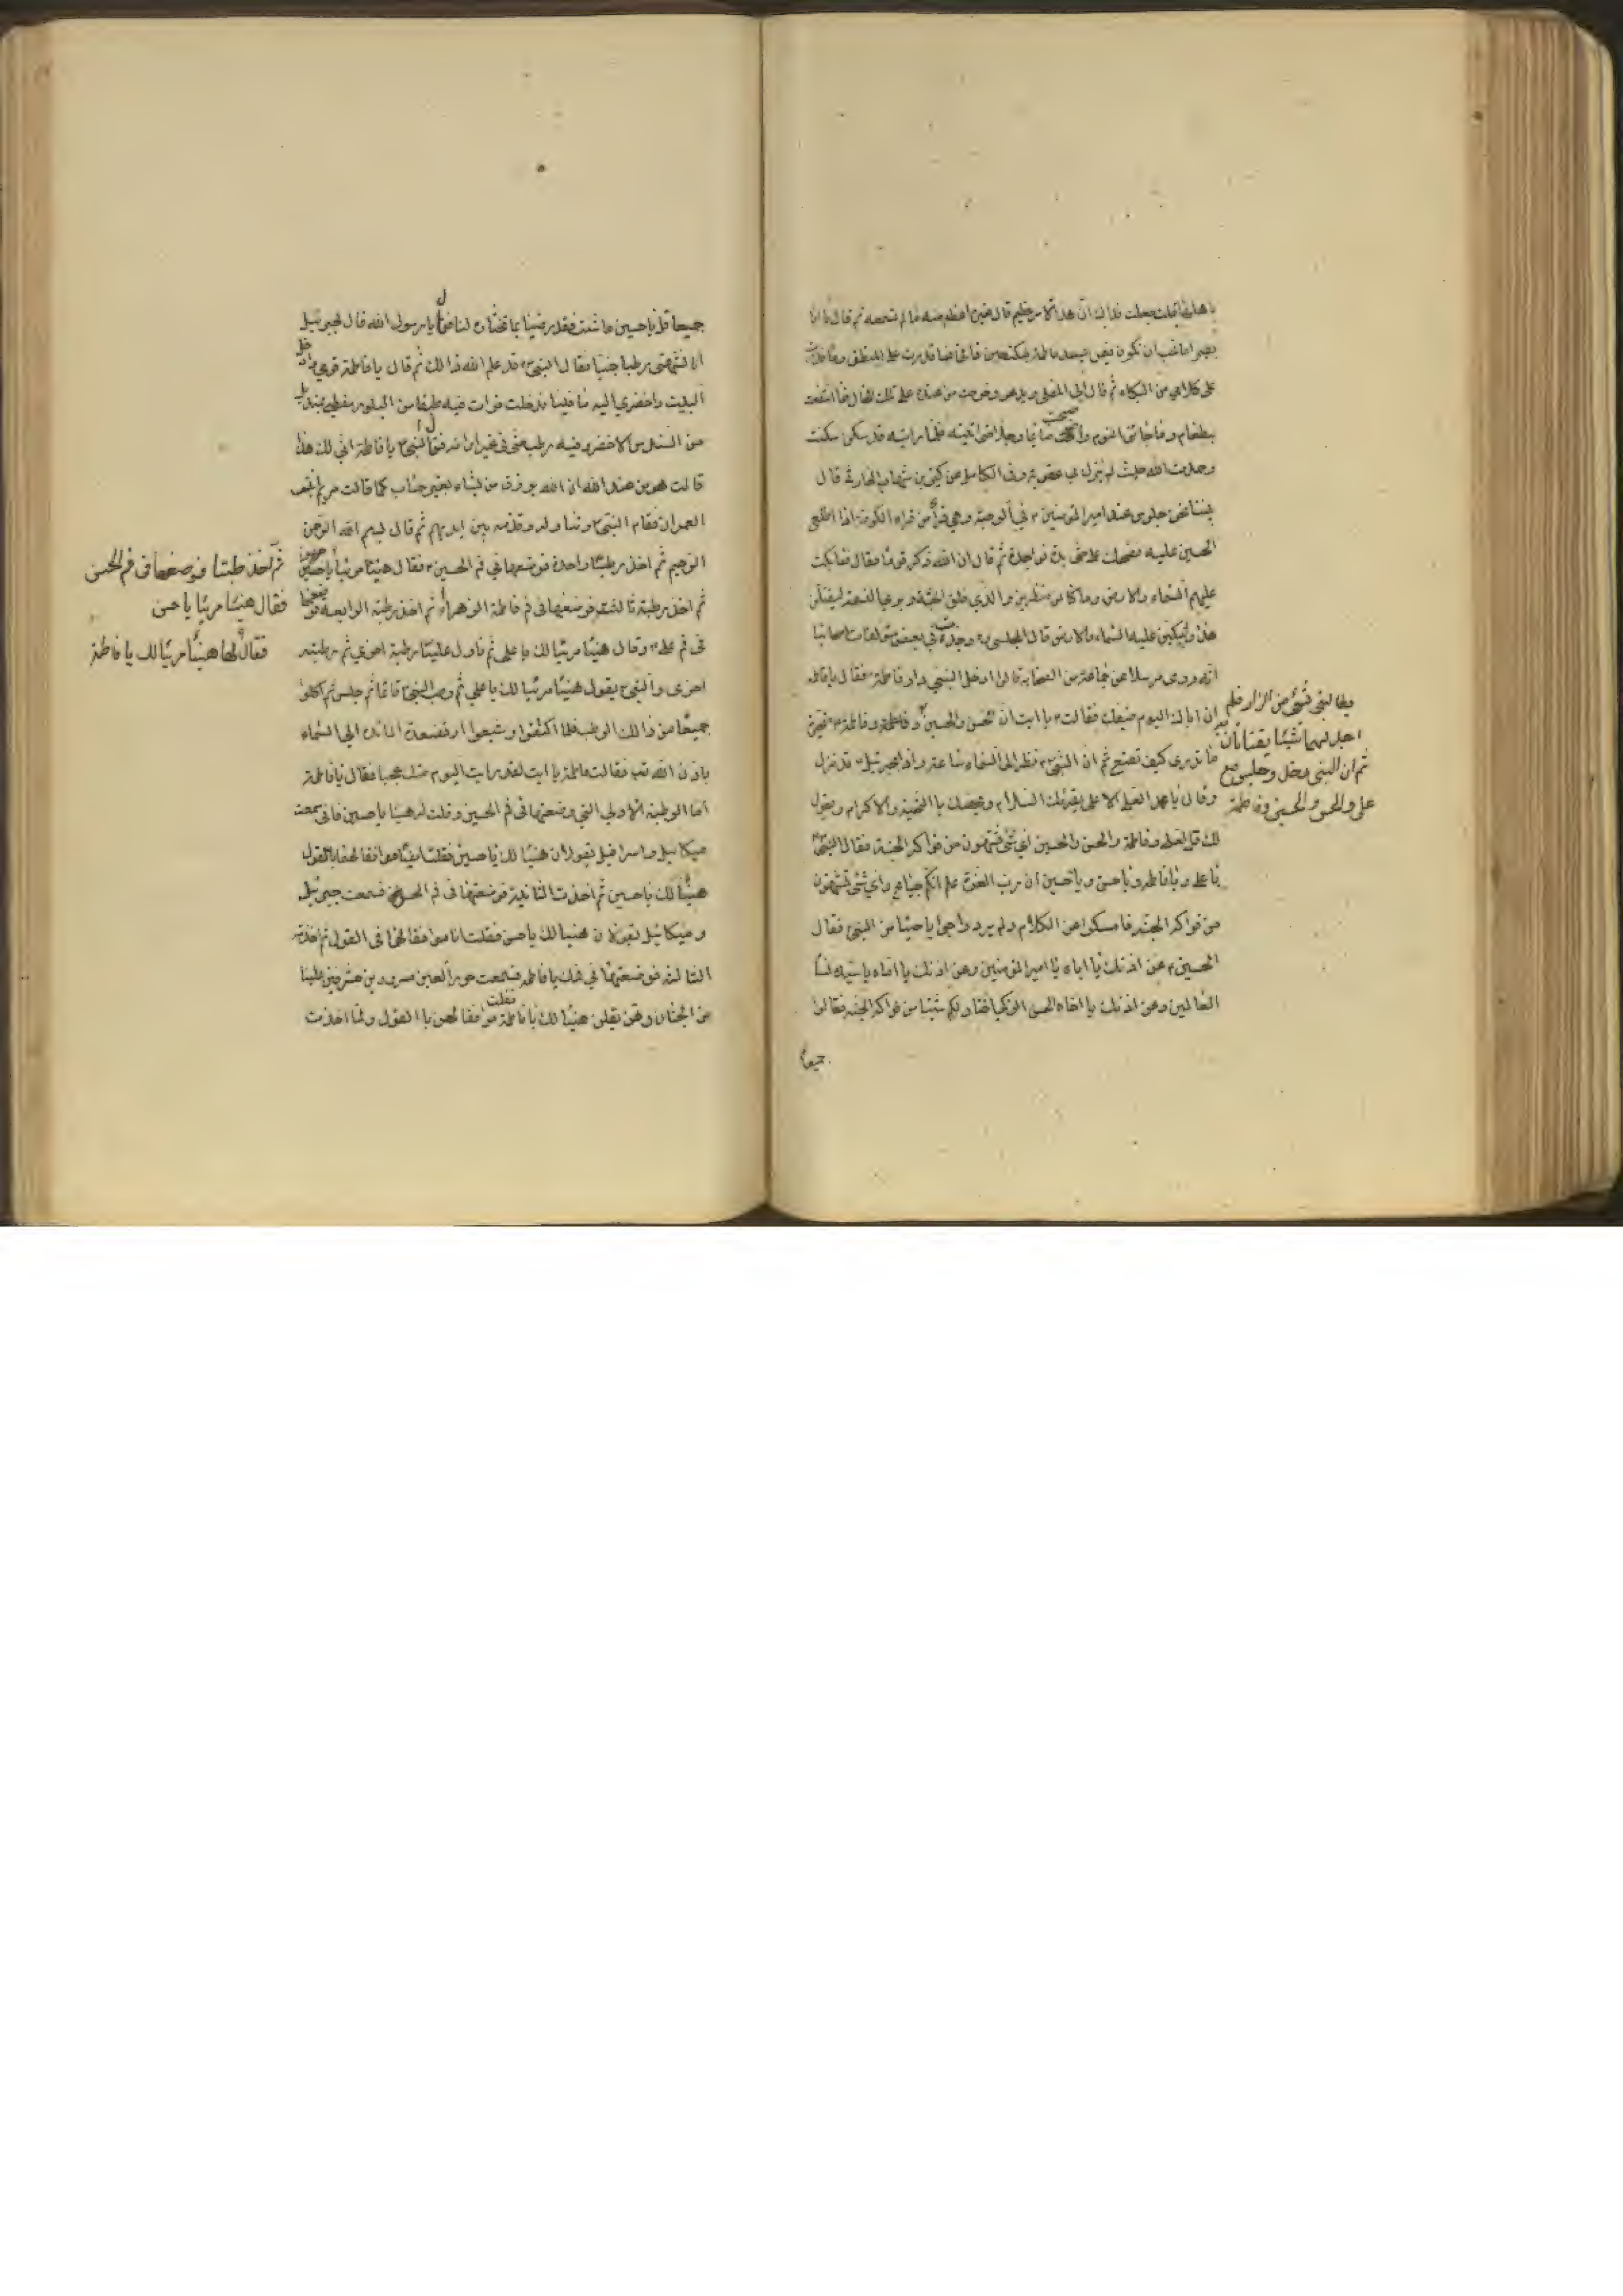 باهلها قلت جعلت فداك ان هذا الامر عظيم قال غيره اعظم منه ما لم تسمعه ثم قال يا ابا
بصير اما تحب ان تكون فيمن يسعد فاطمة فبكيت حين قالها فما قدرت على المنطق وما قدرت
على كلامي من البكاء ثم قام الى المصلى يدعو وخرجت من عنده على تلك الحال فما انتفعت
بطعام وما جاءني النوم واصبحت صائما وجلا حتى اتيته فلما رايته قد سكن سكنت
وحمدت الله حيث لم ينزل بي عقوبة وفي الكامل عن كثير بن شهاب الحارثي قال
بينا نحن جلوس عند امير المؤمنين في الرحبة
الحسين عليه فضحك على حتى بدت نواجذه ثم قال ان الله ذكر قوما فقال فما بكت
عليهم السماء والارض وما كانوا منظرين والذي فلق الحبة وبرء النسمة ليقتلن
هذا وليبكين عليه السماء والارض قال المجلسي وجدت في بعض مؤلفات اصحابنا
انه روى مرسلا عن جماعة من الصحابة قالوا دخل النبي دار فاطمة فقال يا فاطمة
ان اباك اليوم ضيفك فقالت يا ابت ان الحسن والحسين
يطالبني بشئ من الزاد فلم
اجد لهما شيئا يقتاتان به
ثم ان النبي دخل وجلس مع
علي والحسن والحسين وفاطمة
وفاطمة متحيرة
ما تدرى كيف تصنع ثم ان النبي نظر الى السماء ساعة واذا بجبرئيل قد نزل
وقال يا محمد العلي الاعلى يقرئك السلام ويخصك باالتحية والاكرام ويقول
لك قل لعلي وفاطمة والحسن والحسين اي شئ تشتهون من فواكه الجنة فقال النبي
يا علي ويا فاطمة ويا حسن ويا حسين ان رب العزة علم انكم جياع فاي شئ تشتهون
من فواكه الجنة فامسكوا عن الكلام ولم يردوا جوابا حياء من النبي فقال
الحسين عن اذنك يا اباه يا امير المؤمنين وعن اذنك يا اماه يا سيدة نساء
العالمين وعن اذنك يا اخاه الحسن الزكي اختار لكم شيئا من فواكه الجنة فقالوا
جميعا
جميعا قل يا حسين ما شئت فقد رضينا بما تختاره لنا فقال يا رسول الله قال لجبرئيل
انا نشتهى رطبا جنيا فقال النبي قد علم الله ذالك ثم قال يا فاطمة قومي وادخلي
البيت واحضري اليه ما فيه فدخلت فرات فيه طبقا من البلور مغطى بمنديل
من السندس الاخضر وفيه رطب جني في غير اوانه فقال النبي يا فاطمة انى لك هذا
قالت هو من عند الله ان الله يرزق من يشاء بغير حساب كما قالت مريم بنت
العمران فقام النبي وتناوله وقدمه بين ايديهم ثم قال بسم الله الرحمن
الرحيم ثم اخذ رطبة واحدة فوضعها في فم الحسين فقال هنيئا مريئا يا حسين
ثم اخذ رطبتا فوضعها في فم الحسن
فقال هنيئا مريئا يا حسن
ثم اخذ رطبة ثالثة فوضعها في فم فاطمة الزهراء
فقال لها هنيئا مريئا لك يا فاطمة
ثم اخذ رطبة الرابعة فوضعها
في فم علي وقال هنيئا مريئا لك يا علي ثم ناول عليا رطبة اخرى ثم رطبة
اخرى والنبي يقول هنيئا مريئا لك يا علي ثم وثب النبي قائما ثم جلس ثم اكلوا
جميعا من ذالك الرطب فلما اكتفوا وشبعوا ارتفعت المائدة الى السماء
باذن الله تعـ فقالت فاطمة يا ابت لقد رايت اليوم منك عجبا فقال يا فاطمة
اما الرطبة الاولى التي وضعتها في فم الحسين وقلت له هنيئا يا حسين فاني سمعت
ميكائيل واسرافيل يقولان هنيئا لك يا حسين فقلت ايضا موافقا لهما باالقول
هنيئا لك يا حسين ثم اخذت الثانية فوضعتها في فم الحسن فسمعت جبرئيل
وميكائيل يقولان هنيئا لك يا حسن فقلت انا موافقا لهما في القول ثم اخذت
الثالثة فوضعتها في فمك يا فاطمة فسمعت حور العين مسرورين مشرفين علينا
من الجنان وهن يقلن هنيئا لك يا فاطمة فقلت موافقا لهن باالقول ولما اخذت